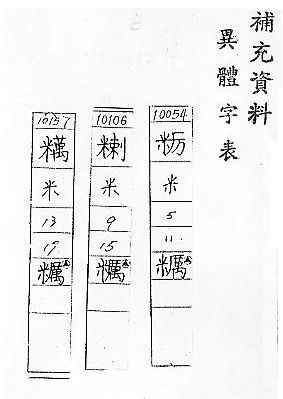 補充資料
異體字表
10054
粝
米
5
11
糲
10106
米
9
15
糲
10157
䊪
米
13
17
糲